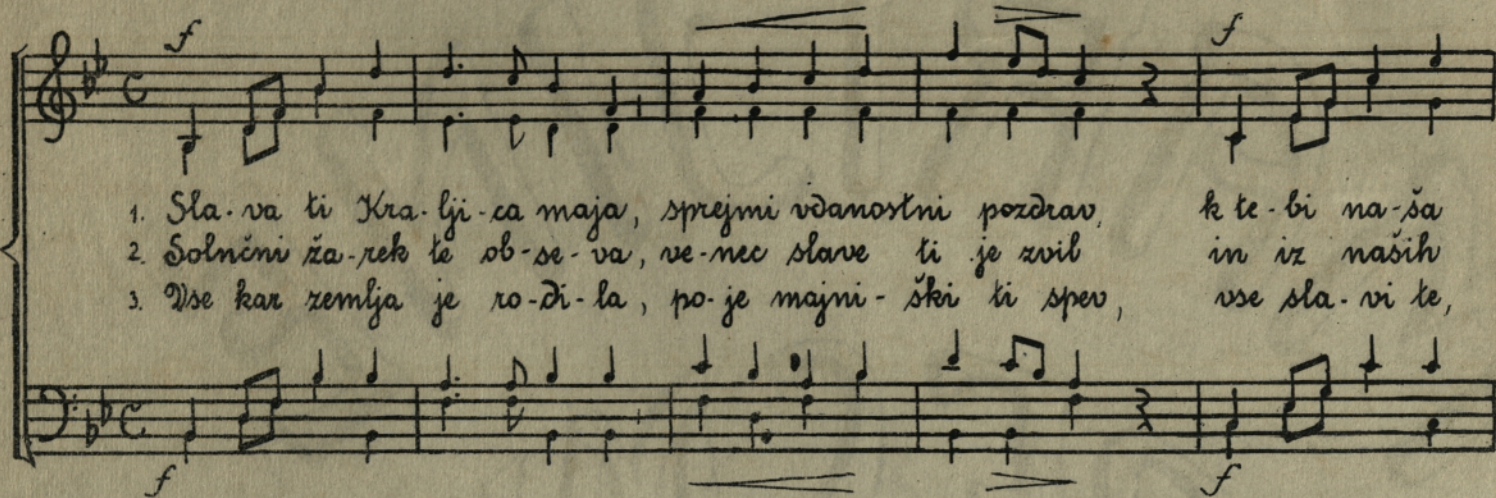 f f
1. Sla-va ti Kra-lji-ca maja, sprejmi vdanostni pozdrav, k te-bi na-ša
2. Solnčni ža-rek te ob-se-va, ve-nec slave ti je zvil in iz naših
3. Vse kar zemlja je ro-di-la, po-je majni-ški ti spev, vse sla-vi te,
f f